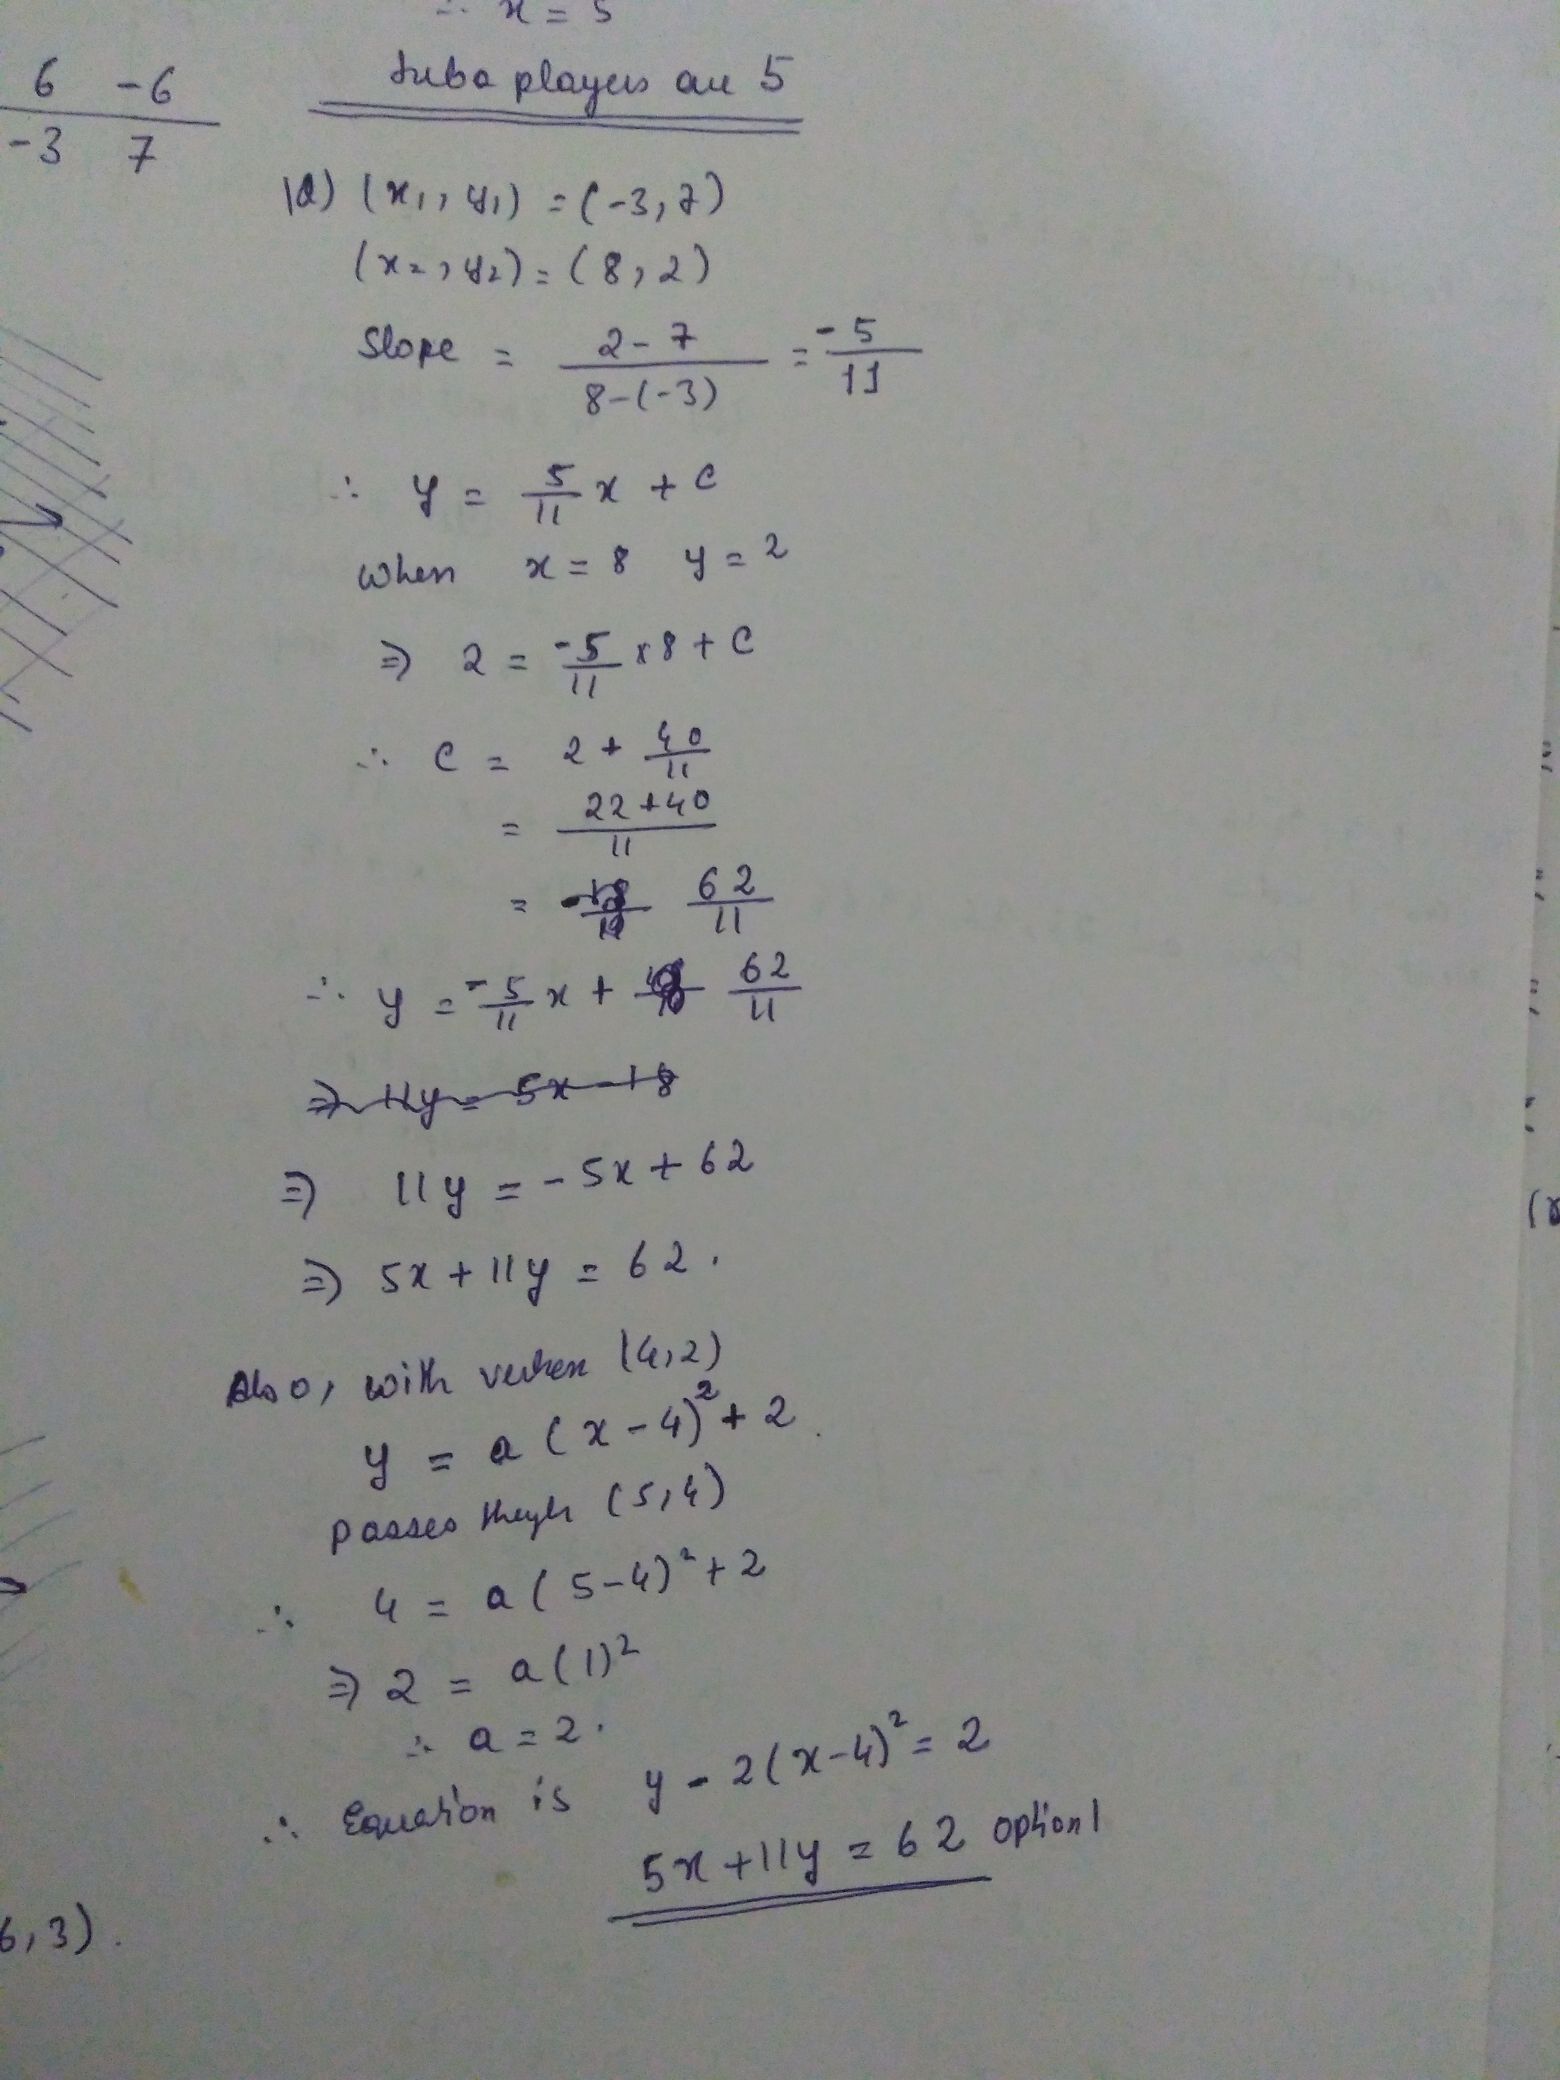 ∴ x = 5
tuba players are 5
6 -6
-3 7
12) (x₁, y₁) = (-3, 7)
(x₂, y₂) = (8, 2)
Slope = (2-7)/(8-(-3)) = -5/11
∴ y = 5/11 x + c
when x = 8 y = 2
⇒ 2 = -5/11 × 8 + c
∴ c = 2 + 40/11
= (22+40)/11
= 62/11
∴ y = -5/11 x + 62/11
⇒ 11y = 5x - 18
⇒ 11y = -5x + 62
⇒ 5x + 11y = 62.
Also, with vertex (4,2)
y = a(x-4)² + 2.
passes through (5,4)
∴ 4 = a(5-4)² + 2
⇒ 2 = a(1)²
∴ a = 2.
∴ Equation is y - 2(x-4)² = 2
5x + 11y = 62 option 1
6,3).